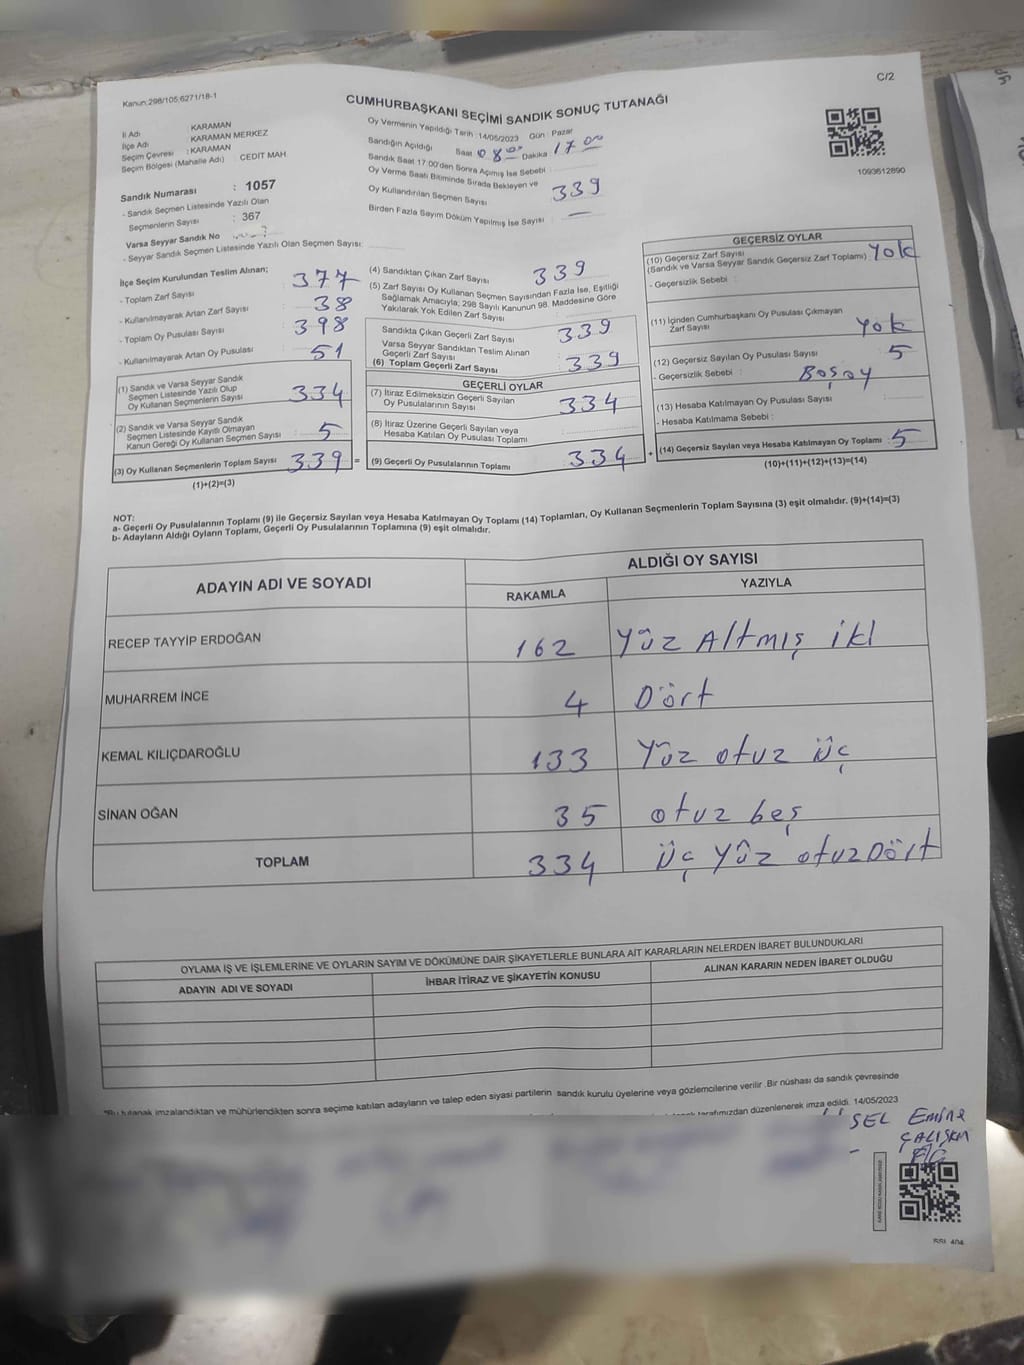 Kanun:298/105;6271/18-1
C/2
CUMHURBAŞKANI SEÇİMİ SANDIK SONUÇ TUTANAĞI
1093612890
İl Adı : KARAMAN
İlçe Adı : KARAMAN MERKEZ
Seçim Çevresi : KARAMAN
Seçim Bölgesi (Mahalle Adı) : CEDİT MAH
Sandık Numarası : 1057
- Sandık Seçmen Listesinde Yazılı Olan
Seçmenlerin Sayısı : 367
Varsa Seyyar Sandık No
- Seyyar Sandık Seçmen Listesinde Yazılı Olan Seçmen Sayısı:
Oy Vermenin Yapıldığı Tarih : 14/05/2023 Gün : Pazar
Sandığın Açıldığı Saat 08.00 Dakika 17.00
Sandık Saat 17:00'den Sonra Açımış İse Sebebi :
Oy Verme Saati Bitiminde Sırada Bekleyen ve
Oy Kullandırılan Seçmen Sayısı 339
Birden Fazla Sayım Döküm Yapılmış İse Sayısı : —
İlçe Seçim Kurulundan Teslim Alınan;
- Toplam Zarf Sayısı : 377
- Kullanılmayarak Artan Zarf Sayısı : 38
- Toplam Oy Pusulası Sayısı : 398
- Kullanılmayarak Artan Oy Pusulası : 51
(1) Sandık ve Varsa Seyyar Sandık
Seçmen Listesinde Yazılı Olup
Oy Kullanan Seçmenlerin Sayısı : 334
(2) Sandık ve Varsa Seyyar Sandık
Seçmen Listesinde Kayıtlı Olmayan
Kanun Gereği Oy Kullanan Seçmen Sayısı : 5
(3) Oy Kullanan Seçmenlerin Toplam Sayısı : 339 =
(1)+(2)=(3)
(4) Sandıktan Çıkan Zarf Sayısı 339
(5) Zarf Sayısı Oy Kullanan Seçmen Sayısından Fazla İse, Eşitliği
Sağlamak Amacıyla; 298 Sayılı Kanunun 98. Maddesine Göre
Yakılarak Yok Edilen Zarf Sayısı :
Sandıkta Çıkan Geçerli Zarf Sayısı : 339
Varsa Seyyar Sandıktan Teslim Alınan
Geçerli Zarf Sayısı
(6) Toplam Geçerli Zarf Sayısı : 339
GEÇERLİ OYLAR
(7) İtiraz Edilmeksizin Geçerli Sayılan
Oy Pusulalarının Sayısı : 334
(8) İtiraz Üzerine Geçerli Sayılan veya
Hesaba Katılan Oy Pusulası Toplamı :
(9) Geçerli Oy Pusulalarının Toplamı : 334 +
GEÇERSİZ OYLAR
(10) Geçersiz Zarf Sayısı
(Sandık ve Varsa Seyyar Sandık Geçersiz Zarf Toplamı) Yok
- Geçersizlik Sebebi :
(11) İçinden Cumhurbaşkanı Oy Pusulası Çıkmayan
Zarf Sayısı : Yok
(12) Geçersiz Sayılan Oy Pusulası Sayısı : 5
- Geçersizlik Sebebi : Boşoy
(13) Hesaba Katılmayan Oy Pusulası Sayısı :
- Hesaba Katılmama Sebebi :
(14) Geçersiz Sayılan veya Hesaba Katılmayan Oy Toplamı : 5
(10)+(11)+(12)+(13)=(14)
NOT:
a- Geçerli Oy Pusulalarının Toplamı (9) ile Geçersiz Sayılan veya Hesaba Katılmayan Oy Toplamı (14) Toplamları, Oy Kullanan Seçmenlerin Toplam Sayısına (3) eşit olmalıdır. (9)+(14)=(3)
b- Adayların Aldığı Oyların Toplamı, Geçerli Oy Pusulalarının Toplamına (9) eşit olmalıdır.
ADAYIN ADI VE SOYADI
ALDIĞI OY SAYISI
RAKAMLA YAZIYLA
RECEP TAYYİP ERDOĞAN 162 Yüz Altmış iki
MUHARREM İNCE 4 Dört
KEMAL KILIÇDAROĞLU 133 Yüz otuz üç
SİNAN OĞAN 35 otuz beş
TOPLAM 334 üç yüz otuzDört
OYLAMA İŞ VE İŞLEMLERİNE VE OYLARIN SAYIM VE DÖKÜMÜNE DAİR ŞİKAYETLERLE BUNLARA AİT KARARLARIN NELERDEN İBARET BULUNDUKLARI
ADAYIN ADI VE SOYADI İHBAR İTİRAZ VE ŞİKAYETİN KONUSU ALINAN KARARIN NEDEN İBARET OLDUĞU
*Bu tutanak imzalandıktan ve mühürlendikten sonra seçime katılan adayların ve talep eden siyasi partilerin sandık kurulu üyelerine veya gözlemcilerine verilir .Bir nüshası da sandık çevresinde
tarafımızdan düzenlenerek imza edildi. 14/05/2023
SEL Emine
ÇALIŞKAN